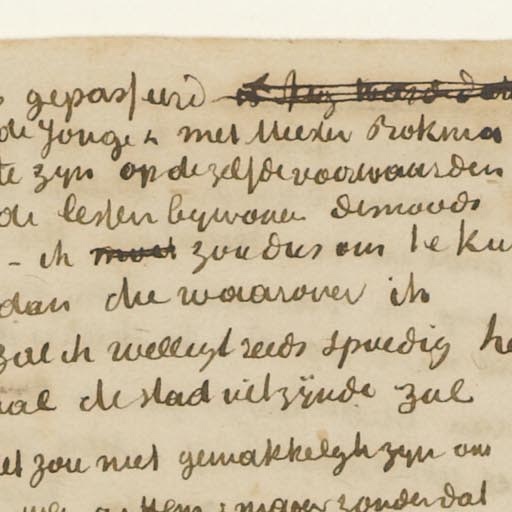 s gepasseerd
de Jonge & met Meester Brokma
te zyn op dezelfde voorwaarden
de lessen bywonen
- ik zou dus om te ku
dan die waarover ik
zal ik wellegt reeds spoedig he
aal de stad uit zÿnde zal
et zou niet gemakkelyk zyn om
maar zonder dat